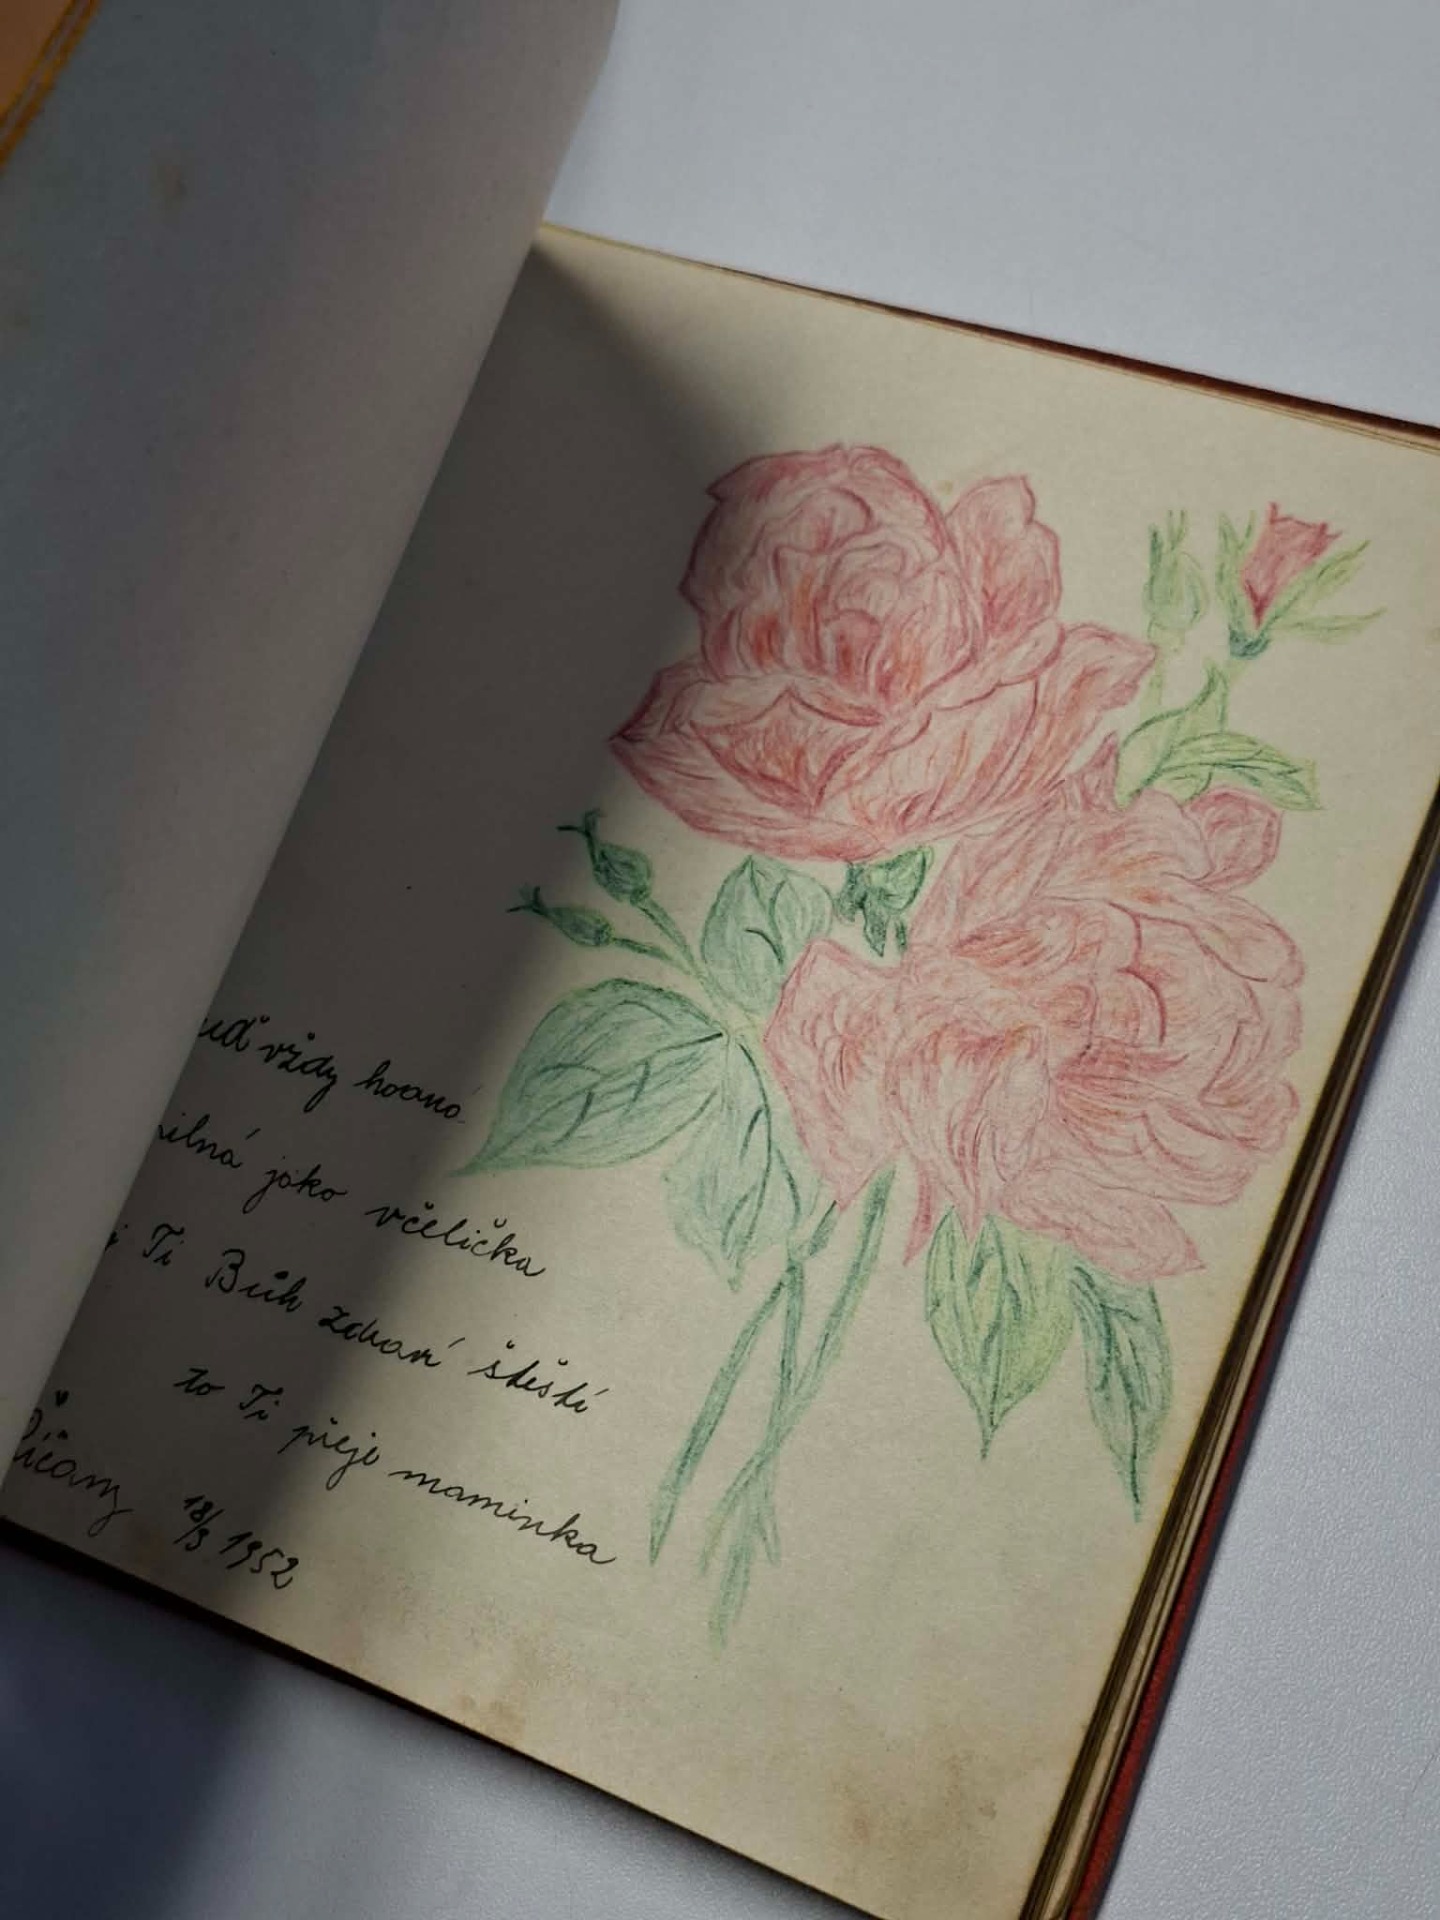 uď vždy hodná
ilná jako včelička
j Ti Bůh zdraví štěstí
to Ti přeje maminka
Říčany 18/3 1952